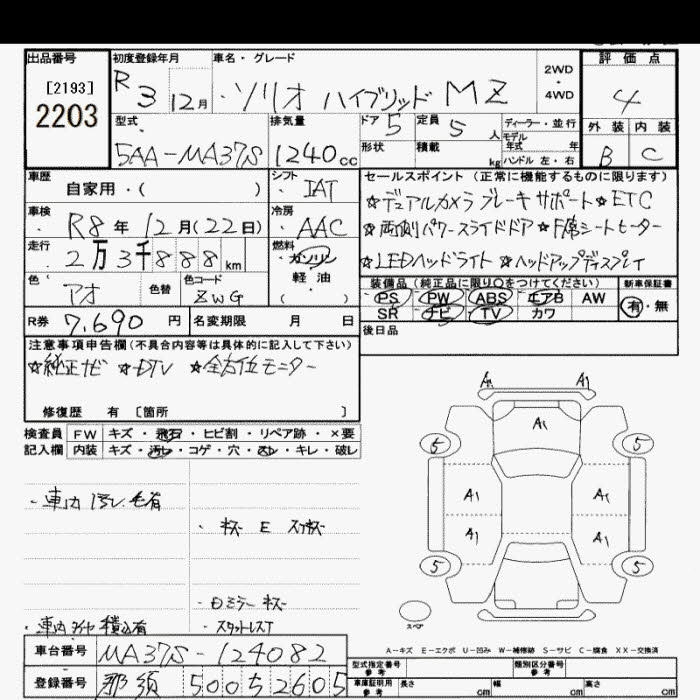 出品番号 初度登録年月 車名・グレード 2WD・4WD 評価点
[2193]
2203
R3 12月 ソリオ ハイブリッド MZ 4
型式 排気量 ドア 5 定員 5人 ディーラー・並行 外装 内装
5AA-MA37S 1240cc 形状 積載 kg モデル年式 年 ハンドル 左・右 B C
車歴 自家用・( ) シフト IAT セールスポイント(正常に機能するものに限ります)
☆デュアルカメラブレーキサポート☆ETC
車検 R8年12月(22日) 冷房 AAC
☆両側パワースライドドア☆F席シートヒーター
走行 2万3千888km 燃料 ガソリン 軽油 ( )
☆LEDヘッドライト☆ヘッドアップディスプレイ
色 アオ 色替 色コード ZWG
装備品(純正品に限り○をつけてください) 新車保証書
PS PW ABS エアB AW 有・無
SR ナビ TV カワ
R券 7,690円 名変期限 月 日
後日品
注意事項申告欄(不具合内容等は具体的に記入して下さい)
☆純正ナビ ☆DTV ☆全方位モニター
修復歴 有 [箇所 ]
検査員 FW キズ・飛石・ヒビ割・リペア跡・×要
記入欄 内装 キズ・汚レ・コゲ・穴・スレ・キレ・破レ
A1 A1
A1
5 5
A1 A1
A1 A1
5 5
スペア
・車内汚レ 毛有
・キズ E スリキズ
・Dミラー キズ
・車内タイヤ積込有 ・スタットレスT
A-キズ E-エクボ U-凹み W-補修跡 S-サビ C-腐食 XX-交換済
車台番号 MA37S-124082
型式指定番号 参考 類別区分番号 参考
登録番号 那須 500 そ 2605
車庫証明用 参考 長さ cm 幅 cm 高さ cm